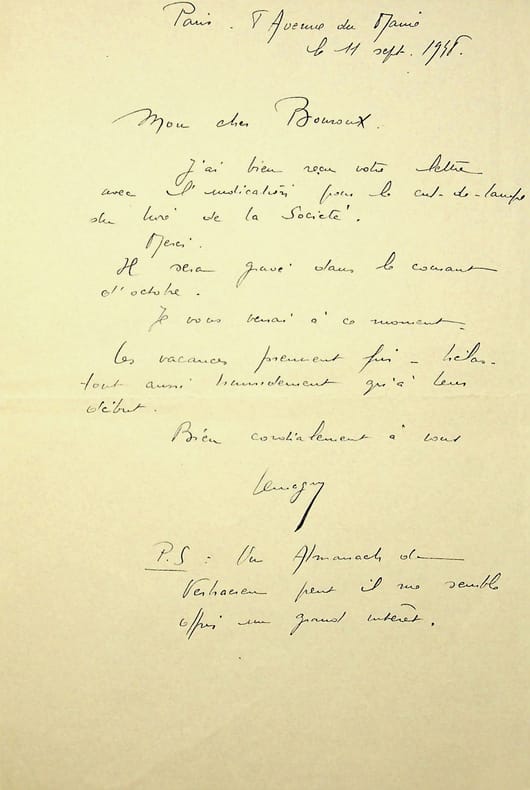 Paris. 8 Avenue du Maine
le 11 sept. 1948.
Mon cher Bouroux.
J'ai bien reçu votre lettre
avec l'indication pour le cul-de-lampe
du livre de la Société.
Merci.
Il sera gravé dans le courant
d'octobre.
Je vous verrai à ce moment.
Les vacances prennent fin - hélas -
tout aussi humidement qu'à leur
début.
Bien cordialement à vous
Lemagny
P.S : Un Almanach du
peut il me semble
offrir un grand intérêt.